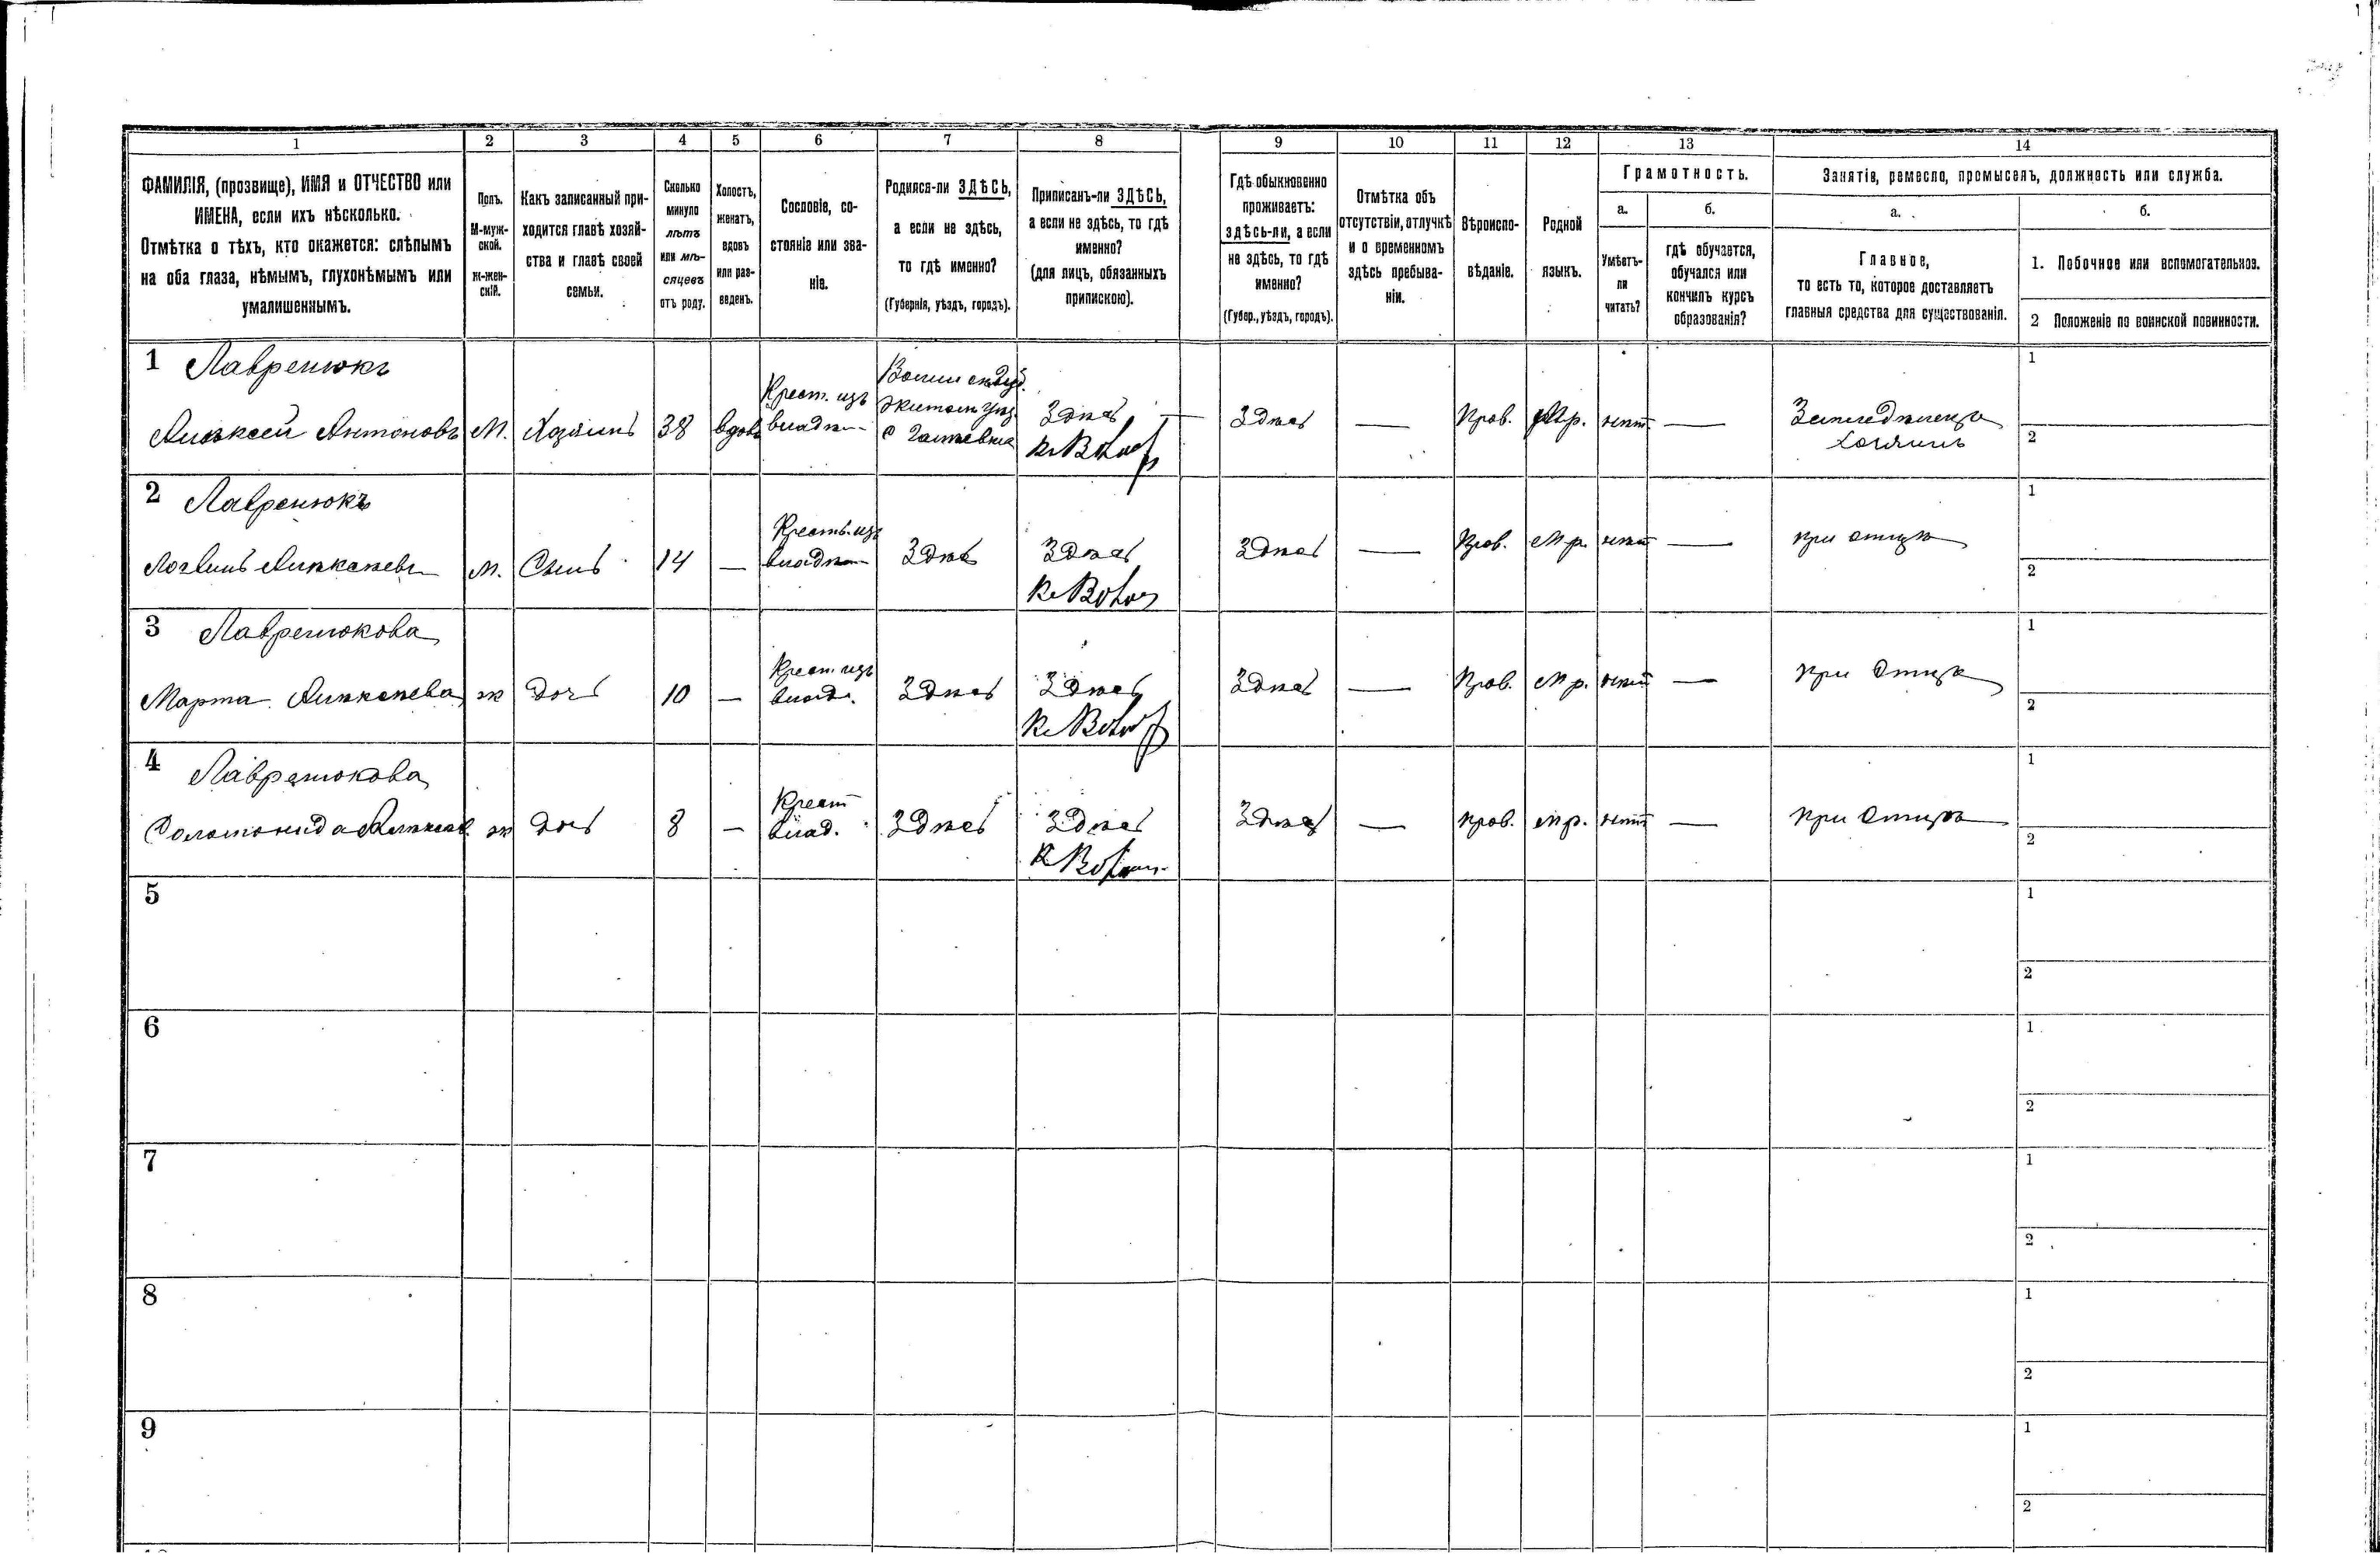 1 2 3 4 5 6 7 8 9 10 11 12 13 14
ФАМИЛІЯ, (прозвище), ИМЯ и ОТЧЕСТВО или
ИМЕНА, если ихъ нѣсколько.
Отмѣтка о тѣхъ, кто окажется: слѣпымъ
на оба глаза, нѣмымъ, глухонѣмымъ или
умалишеннымъ.
Полъ.
М-муж-
ской.
Ж-жен-
скій.
Какъ записанный при-
ходится главѣ хозяй-
ства и главѣ своей
семьи.
Сколько
минуло
лѣтъ
или мѣ-
сяцевъ
отъ роду.
Холостъ,
женатъ,
вдовъ
или раз-
веденъ.
Сословіе, со-
стояніе или зва-
ніе.
Родился-ли ЗДѢСЬ,
а если не здѣсь,
то гдѣ именно?
(Губернія, уѣздъ, городъ).
Приписанъ-ли ЗДѢСЬ,
а если не здѣсь, то гдѣ
именно?
(для лицъ, обязанныхъ
припискою).
Гдѣ обыкновенно
проживаетъ:
здѣсь-ли, а если
не здѣсь, то гдѣ
именно?
(Губер., уѣздъ, городъ).
Отмѣтка объ
отсутствіи, отлучкѣ
и о временномъ
здѣсь пребыва-
ніи.
Вѣроиспо-
вѣданіе.
Родной
языкъ.
Грамотность.
а.
Умѣетъ-
ли
читать?
б.
гдѣ обучается,
обучался или
кончилъ курсъ
образованія?
Занятіе, ремесло, промыселъ, должность или служба.
а.
Главное,
то есть то, которое доставляетъ
главныя средства для существованія.
б.
1. Побочное или вспомогательное.
2 Положеніе по воинской повинности.
1 Лавренюкъ
Алексей Антоновъ М. Хозяинъ 38 вдовъ Крест. изъ Здѣсь — Здѣсь — Прав. Мр. нѣтъ — 1
Хозяинъ 2
2 Лавренюкъ
М. Сынъ 14 — Кресть. изъ Здѣсь Здѣсь Здѣсь — Прав. Мр. нѣтъ — при отцѣ 1
2
3 Лавренюкова
Марта Алексеева ж дочь 10 — Крест. изъ влад. Здѣсь Здѣсь Здѣсь — Прав. Мр. нѣтъ — при отцѣ 1
2
4 Лавренюкова
ж дочь 8 — Крест влад. Здѣсь Здѣсь Здѣсь — прав. мр. нѣтъ — при отцѣ 1
2
5 1
2
6 1
2
7 1
2
8 1
2
9 1
2